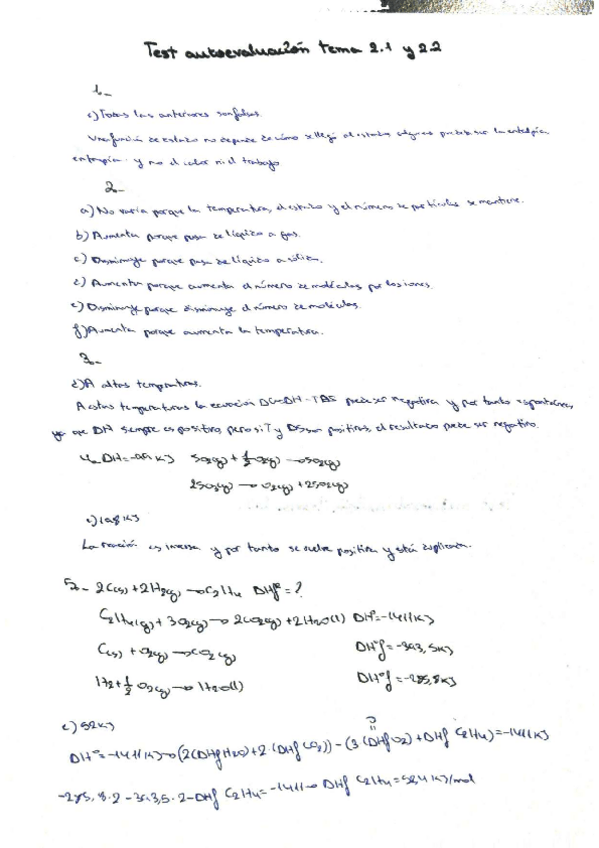 Test autoevaluación tema 2.1 y 2.2
1.-
c) Todas las anteriores son falsas.
Una función de estado no depende de cómo se llegó al estado, algunas puede ser la entalpía
entropía y no el calor ni el trabajo.
2.-
a) No varía porque la temperatura, el estado y el número de partículas se mantiene.
b) Aumenta porque pasa de líquido a gas.
c) Disminuye porque pasa de líquido a sólido.
d) Aumenta porque aumenta el número de moléculas por los iones.
e) Disminuye porque disminuye el número de moléculas.
f) Aumenta porque aumenta la temperatura.
3.-
d) A altas temperaturas.
A estas temperaturas la ecuación DG=DH-TDS puede ser negativa y por tanto espontánea,
ya que DH siempre es positivo, pero si T y DS son positivas, el resultado puede ser negativo.
4.- DH=-99 KJ SO2(g) + 1/2 O2(g) → SO3(g)
2SO3(g) → O2(g) + 2SO2(g)
c) 198 KJ
La reacción es inversa y por tanto se vuelve positiva y está duplicada.
5.- 2C(s) + 2H2(g) → C2H4 DHfº = ?
C2H4(g) + 3O2(g) → 2CO2(g) + 2H2O(l) DHº=-1411 KJ
C(s) + O2(g) → CO2(g) DHºf=-393,5 KJ
H2 + 1/2 O2(g) → H2O(l) DHºf=-285,8 KJ
c) 52 KJ
DHº=-1411 KJ → (2(DHf H2O) + 2·(DHf CO2)) - (3(DHf O2) + DHf C2H4) = -1411 KJ
-285,8·2 - 393,5·2 - DHf C2H4 = -1411 → DHf C2H4 = 52,4 KJ/mol